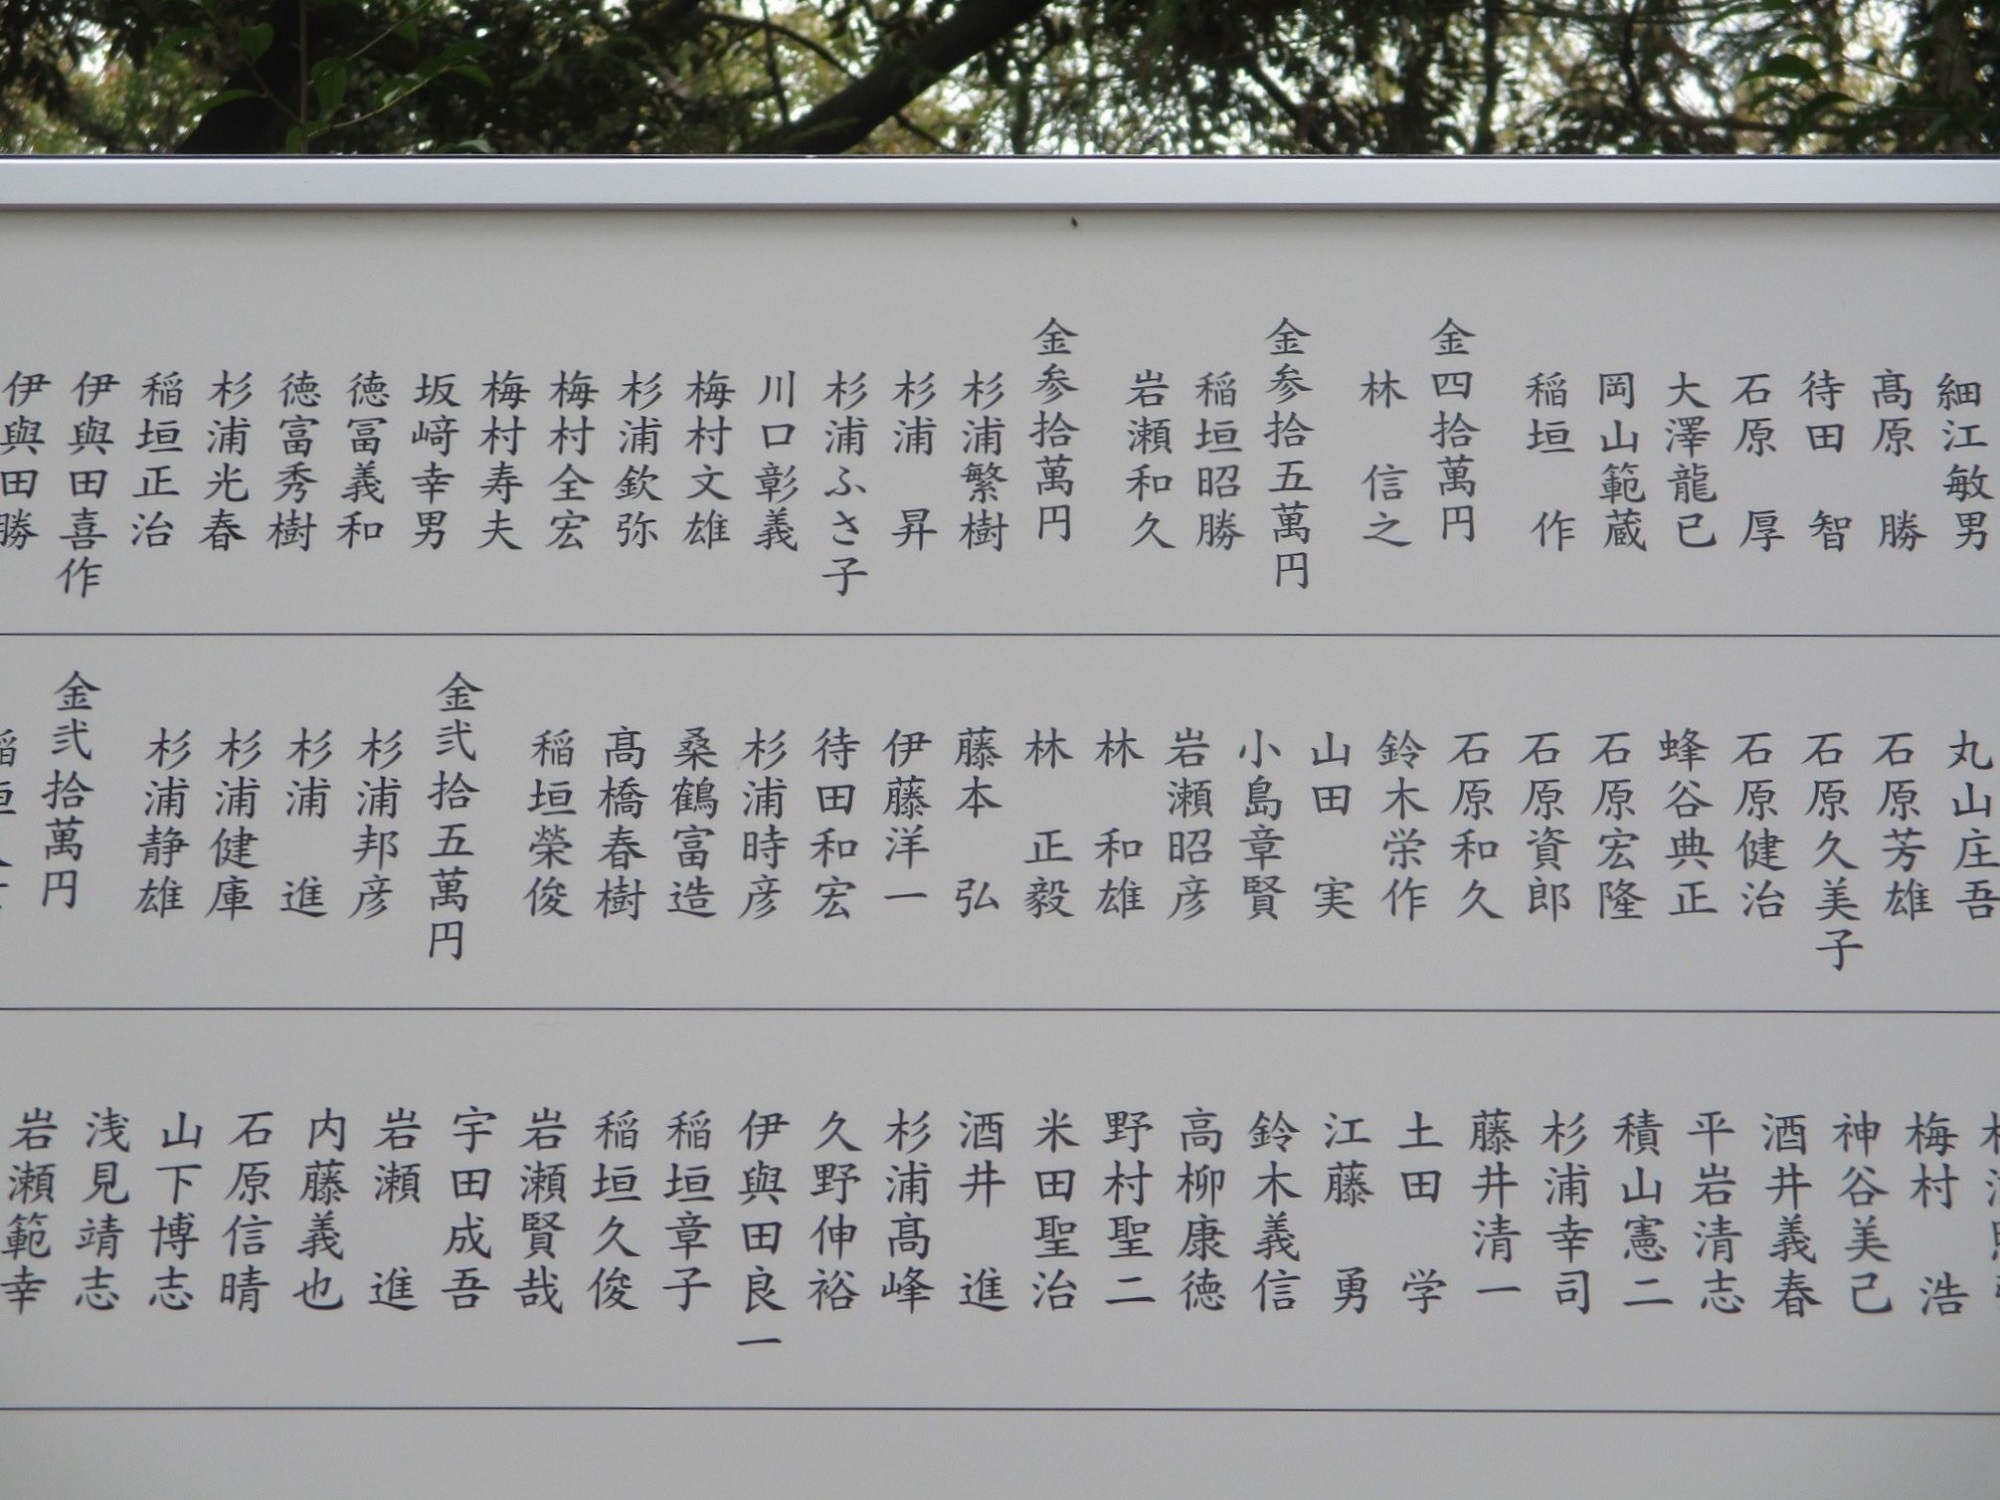 細江敏男
髙原　勝
待田　智
石原　厚
大澤龍已
岡山範蔵
稲垣　作
金四拾萬円
林　信之
金参拾五萬円
稲垣昭勝
岩瀬和久
金参拾萬円
杉浦繁樹
杉浦　昇
杉浦ふさ子
川口彰義
梅村文雄
杉浦欽弥
梅村全宏
梅村寿夫
坂﨑幸男
徳冨義和
徳富秀樹
杉浦光春
稲垣正治
伊與田喜作
伊與田勝
丸山庄吾
石原芳雄
石原久美子
石原健治
蜂谷典正
石原宏隆
石原資郎
石原和久
鈴木栄作
山田　実
小島章賢
岩瀬昭彦
林　和雄
林　正毅
藤本　弘
伊藤洋一
待田和宏
杉浦時彦
桑鶴富造
髙橋春樹
稲垣榮俊
金弐拾五萬円
杉浦邦彦
杉浦　進
杉浦健庫
杉浦静雄
金弐拾萬円
梅村　浩
神谷美己
酒井義春
平岩清志
積山憲二
杉浦幸司
藤井清一
土田　学
江藤　勇
鈴木義信
高柳康徳
野村聖二
米田聖治
酒井　進
杉浦髙峰
久野伸裕
伊與田良一
稲垣章子
稲垣久俊
岩瀬賢哉
宇田成吾
岩瀬　進
内藤義也
石原信晴
山下博志
浅見靖志
岩瀬範幸